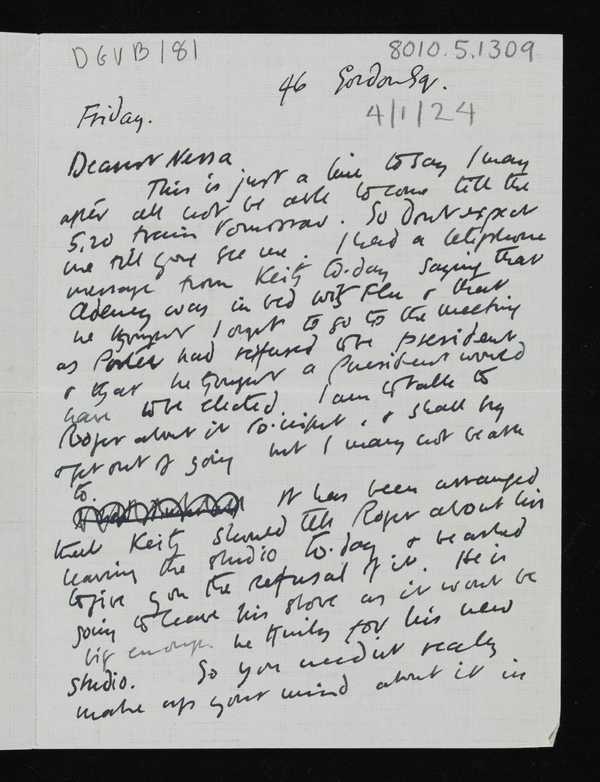 DGVB/81
8010.5.1309
46 Gordon Sq.
4/1/24
Friday.
Dearest Nessa
This is just a line to say I may
after all not be able to come till the
5.20 train tomorrow. So don't expect
me till you see me. I had a telephone
message from Keith to-day saying that
Adeney was in bed with Flu & that
he thought I ought to go to the meeting
as Porter had refused to be president
& that he thought a President would
have to be elected. I am to talk to
Roger about it to-night, & shall try
& get out of going but I may not be able
to.
It has been arranged
that Keith should tell Roger about his
leaving the studio to-day & be asked
to give you the refusal of it. He is
going to leave his stove as it wont be
big enough he thinks for his new
studio. So you needn't really
make up your mind about it in